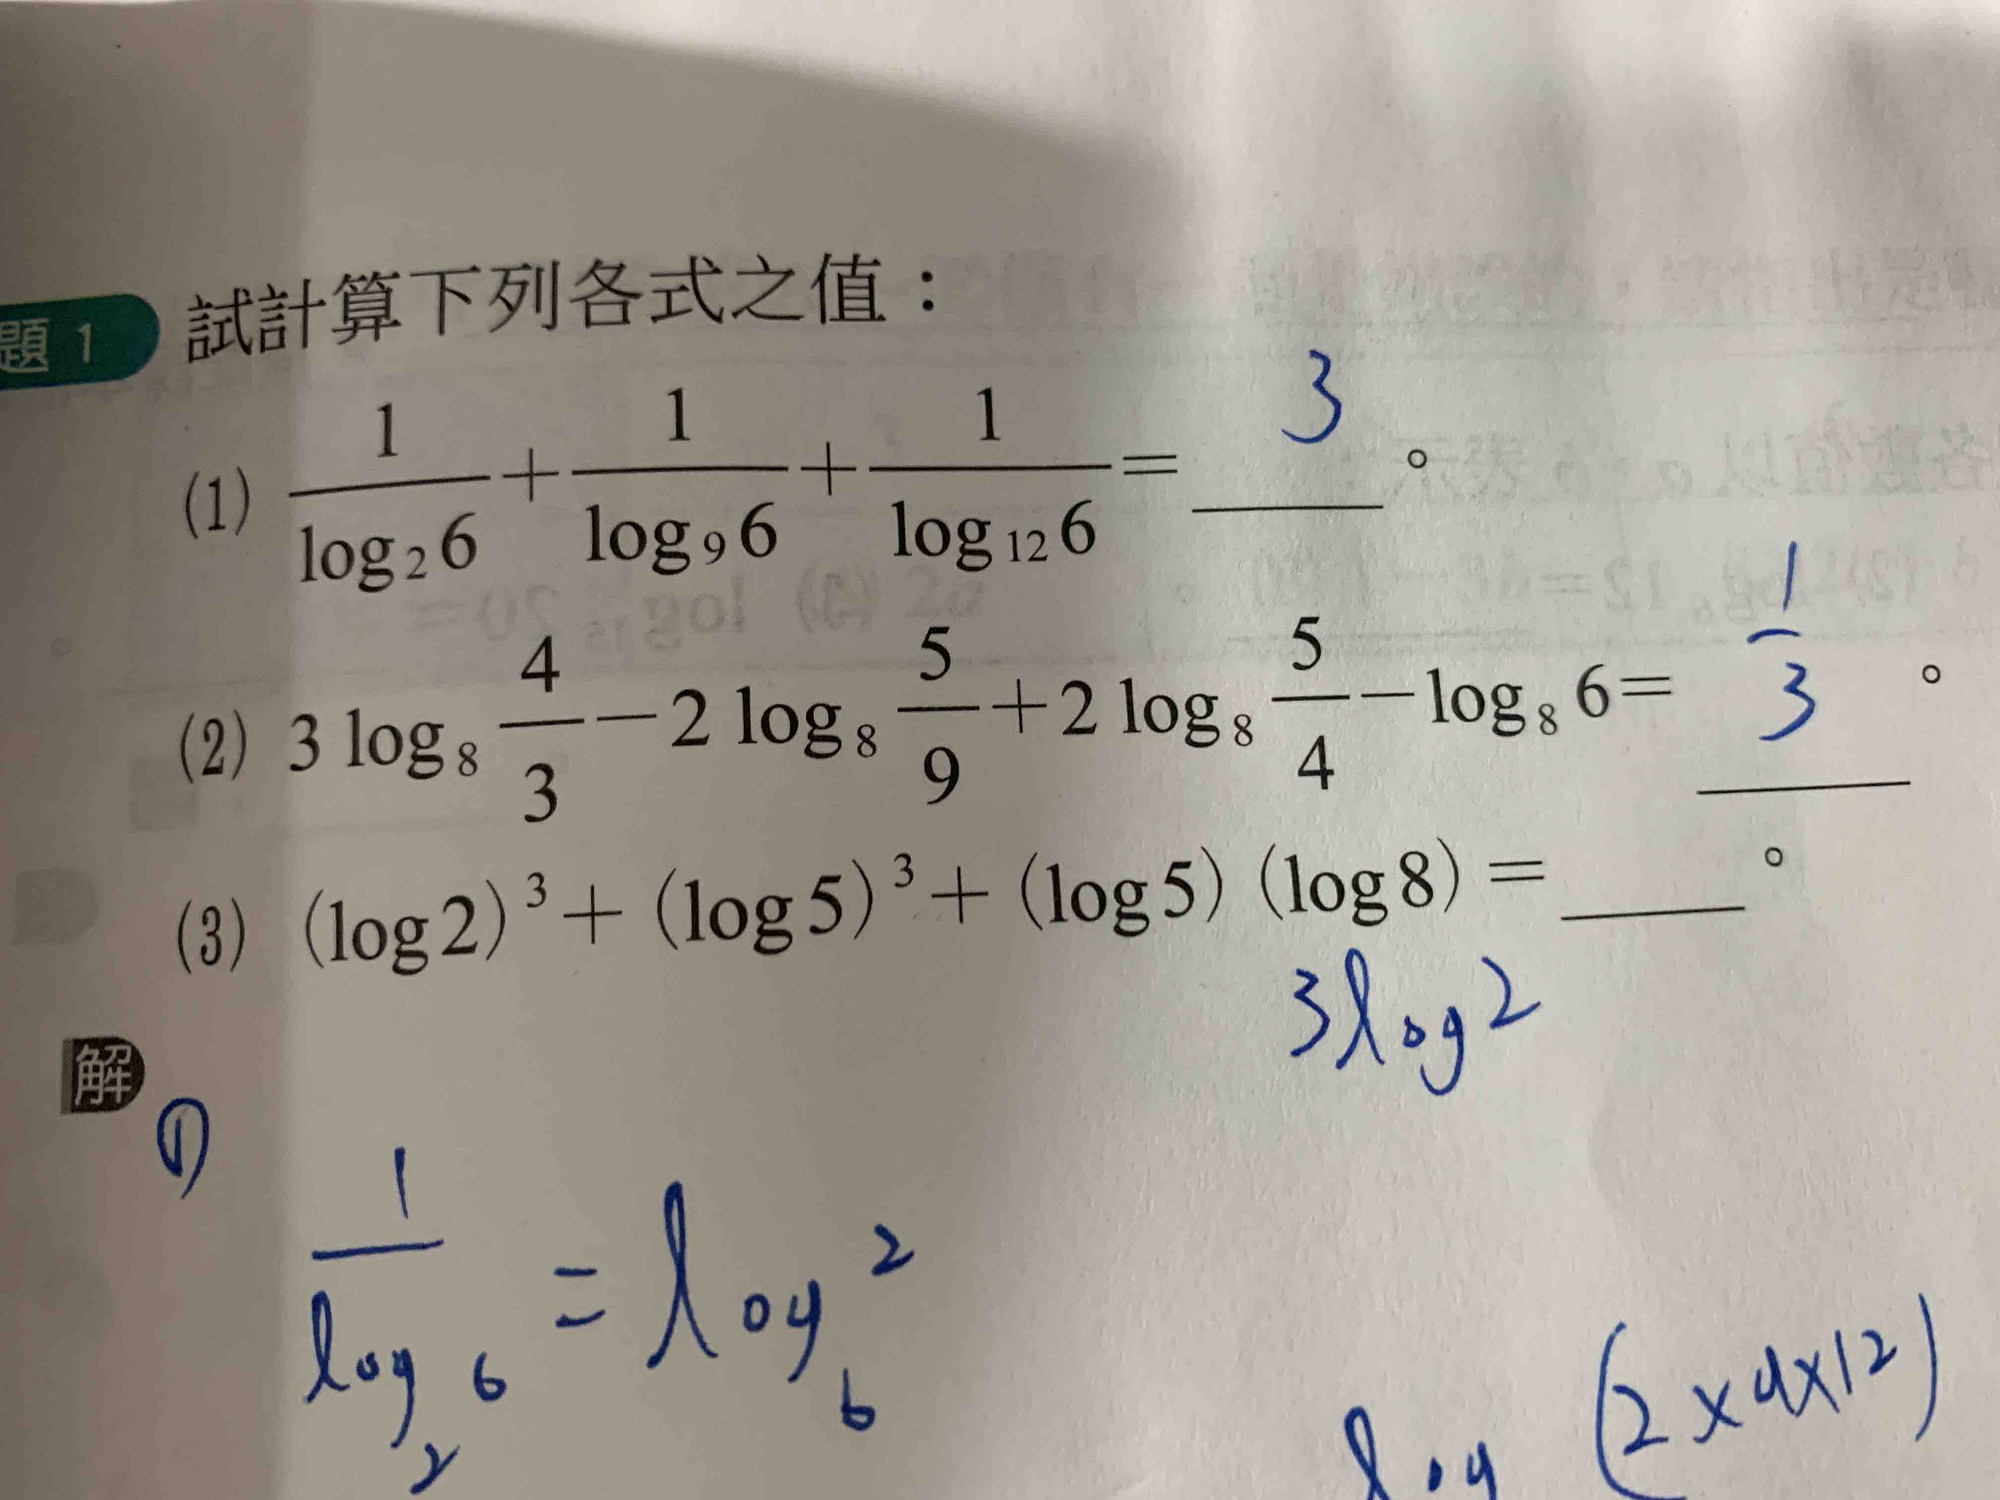 題 1 試計算下列各式之值：
(1) \frac{1}{\log_2 6}+\frac{1}{\log_9 6}+\frac{1}{\log_{12} 6}= 3 。
(2) 3 \log_8 \frac{4}{3}-2 \log_8 \frac{5}{9}+2 \log_8 \frac{5}{4}-\log_8 6= \frac{1}{3} 。
(3) (log2)^3+(log5)^3+(log5)(log8)=____。
3log2
解
①
\frac{1}{\log_2 6}=\log_6 2
log (2×9×12)